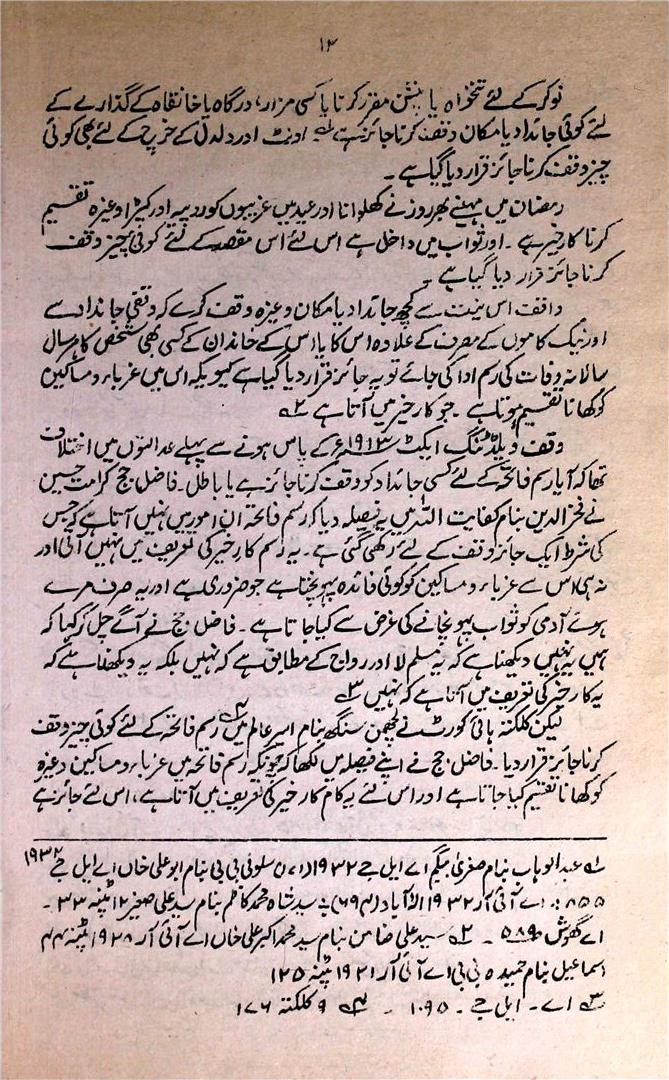 ۱۴
نوکر کے لئے تنخواہ یا پنشن مقرر کرنا یا کسی مزار، درگاہ یا خانقاہ کے گذارے کے
لئے کوئی جائداد یا مکان وقف کرنا جائز ہے، اونٹ اور دلدل کے خرچ کے لئے بھی کوئی
چیز وقف کرنا جائز قرار دیا گیا ہے۔
رمضان میں مہینے بھر روزے کھلوانا اور عید میں غریبوں کو روپیہ اور کپڑا وغیرہ تقسیم
کرنا کار خیر ہے۔ اور ثواب میں داخل ہے اس لئے اس مقصد کے لئے کوئی چیز وقف
کرنا جائز قرار دیا گیا ہے۔
واقف اس نیت سے کچھ جائداد یا مکان وغیرہ وقف کرے کہ وقفی جائداد سے
اور نیک کاموں کے مصرف کے علاوہ اس کا یا اس کے خاندان کے کسی بھی شخص کا ہر سال
سالانہ وفات کی رسم ادا کی جائے تو یہ جائز قرار دیا گیا ہے کیونکہ اس میں غرباء و مساکین
کو کھانا تقسیم ہوتا ہے۔ جو کار خیر میں آتا ہے ۲ے
وقف ویلڈٹنگ ایکٹ ۱۹۱۳ء کے پاس ہونے سے پہلے عدالتوں میں اختلاف
تھا کہ آیا رسم فاتحہ کے لئے کسی جائداد کو وقف کرنا جائز ہے یا باطل۔ فاضل جج کرامت حسین
نے فخر الدین بنام کفایت اللہ میں یہ فیصلہ دیا کہ رسم فاتحہ ان امور میں نہیں آتا ہے کہ جس
کی شرط ایک جائز وقف کے لئے رکھی گئی ہے۔ یہ رسم کار خیر کی تعریف میں نہیں آتی اور
نہ ہی اس سے غرباء و مساکین کو کوئی فائدہ پہونچتا ہے جو ضروری ہے اور یہ صرف مرے
ہوئے آدمی کو ثواب پہونچانے کی غرض سے کیا جاتا ہے۔ فاضل جج نے آگے چل کر کہا کہ
ہمیں یہ نہیں دیکھنا ہے کہ یہ مسلم لا اور رواج کے مطابق ہے کہ نہیں بلکہ یہ دیکھنا ہے کہ
یہ کار خیر کی تعریف میں آتا ہے کہ نہیں ۳ے
لیکن کلکتہ ہائی کورٹ نے لچھمن سنگھ بنام امیر عالم میں ۴ے رسم فاتحہ کے لئے کوئی چیز وقف
کرنا جائز قرار دیا۔ فاضل جج نے اپنے فیصلہ میں لکھا کہ چونکہ رسم فاتحہ میں غرباء و مساکین وغیرہ
کو کھانا تقسیم کیا جاتا ہے اور اس لئے یہ کام کار خیر کی تعریف میں آتا ہے، اس لئے جائز ہے
۱ے عبدالوہاب بنام صغریٰ بیگم اے ایل جے ۱۹۳۲ سلونی بی بی بنام ابو علی خاں اے ایل جے ۱۹۳۲
۸۵۵ : اے آئی آر ۱۹۳۲ الہ آباد سید شاہ محمد کاظم بنام سید علی صغیر ۱۲ پٹنہ ۳۳۔
۲ے سید علی ضامن بنام سید محمد اکبر علی خاں اے آئی آر ۱۹۲۸ پٹنہ ۴۴۱
اسماعیل بنام حمیدہ بی بی اے آئی آر ۱۹۲۱ پٹنہ ۱۲۵
۳ے اے۔ ایل جے۔ ۱۰۹۵ - ۴ے ۹ کلکتہ ۱۷۶